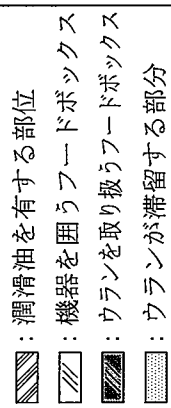 ：潤滑油を有する部位
：機器を囲うフードボックス
：ウランを取り扱うフードボックス
：ウランが滞留する部分